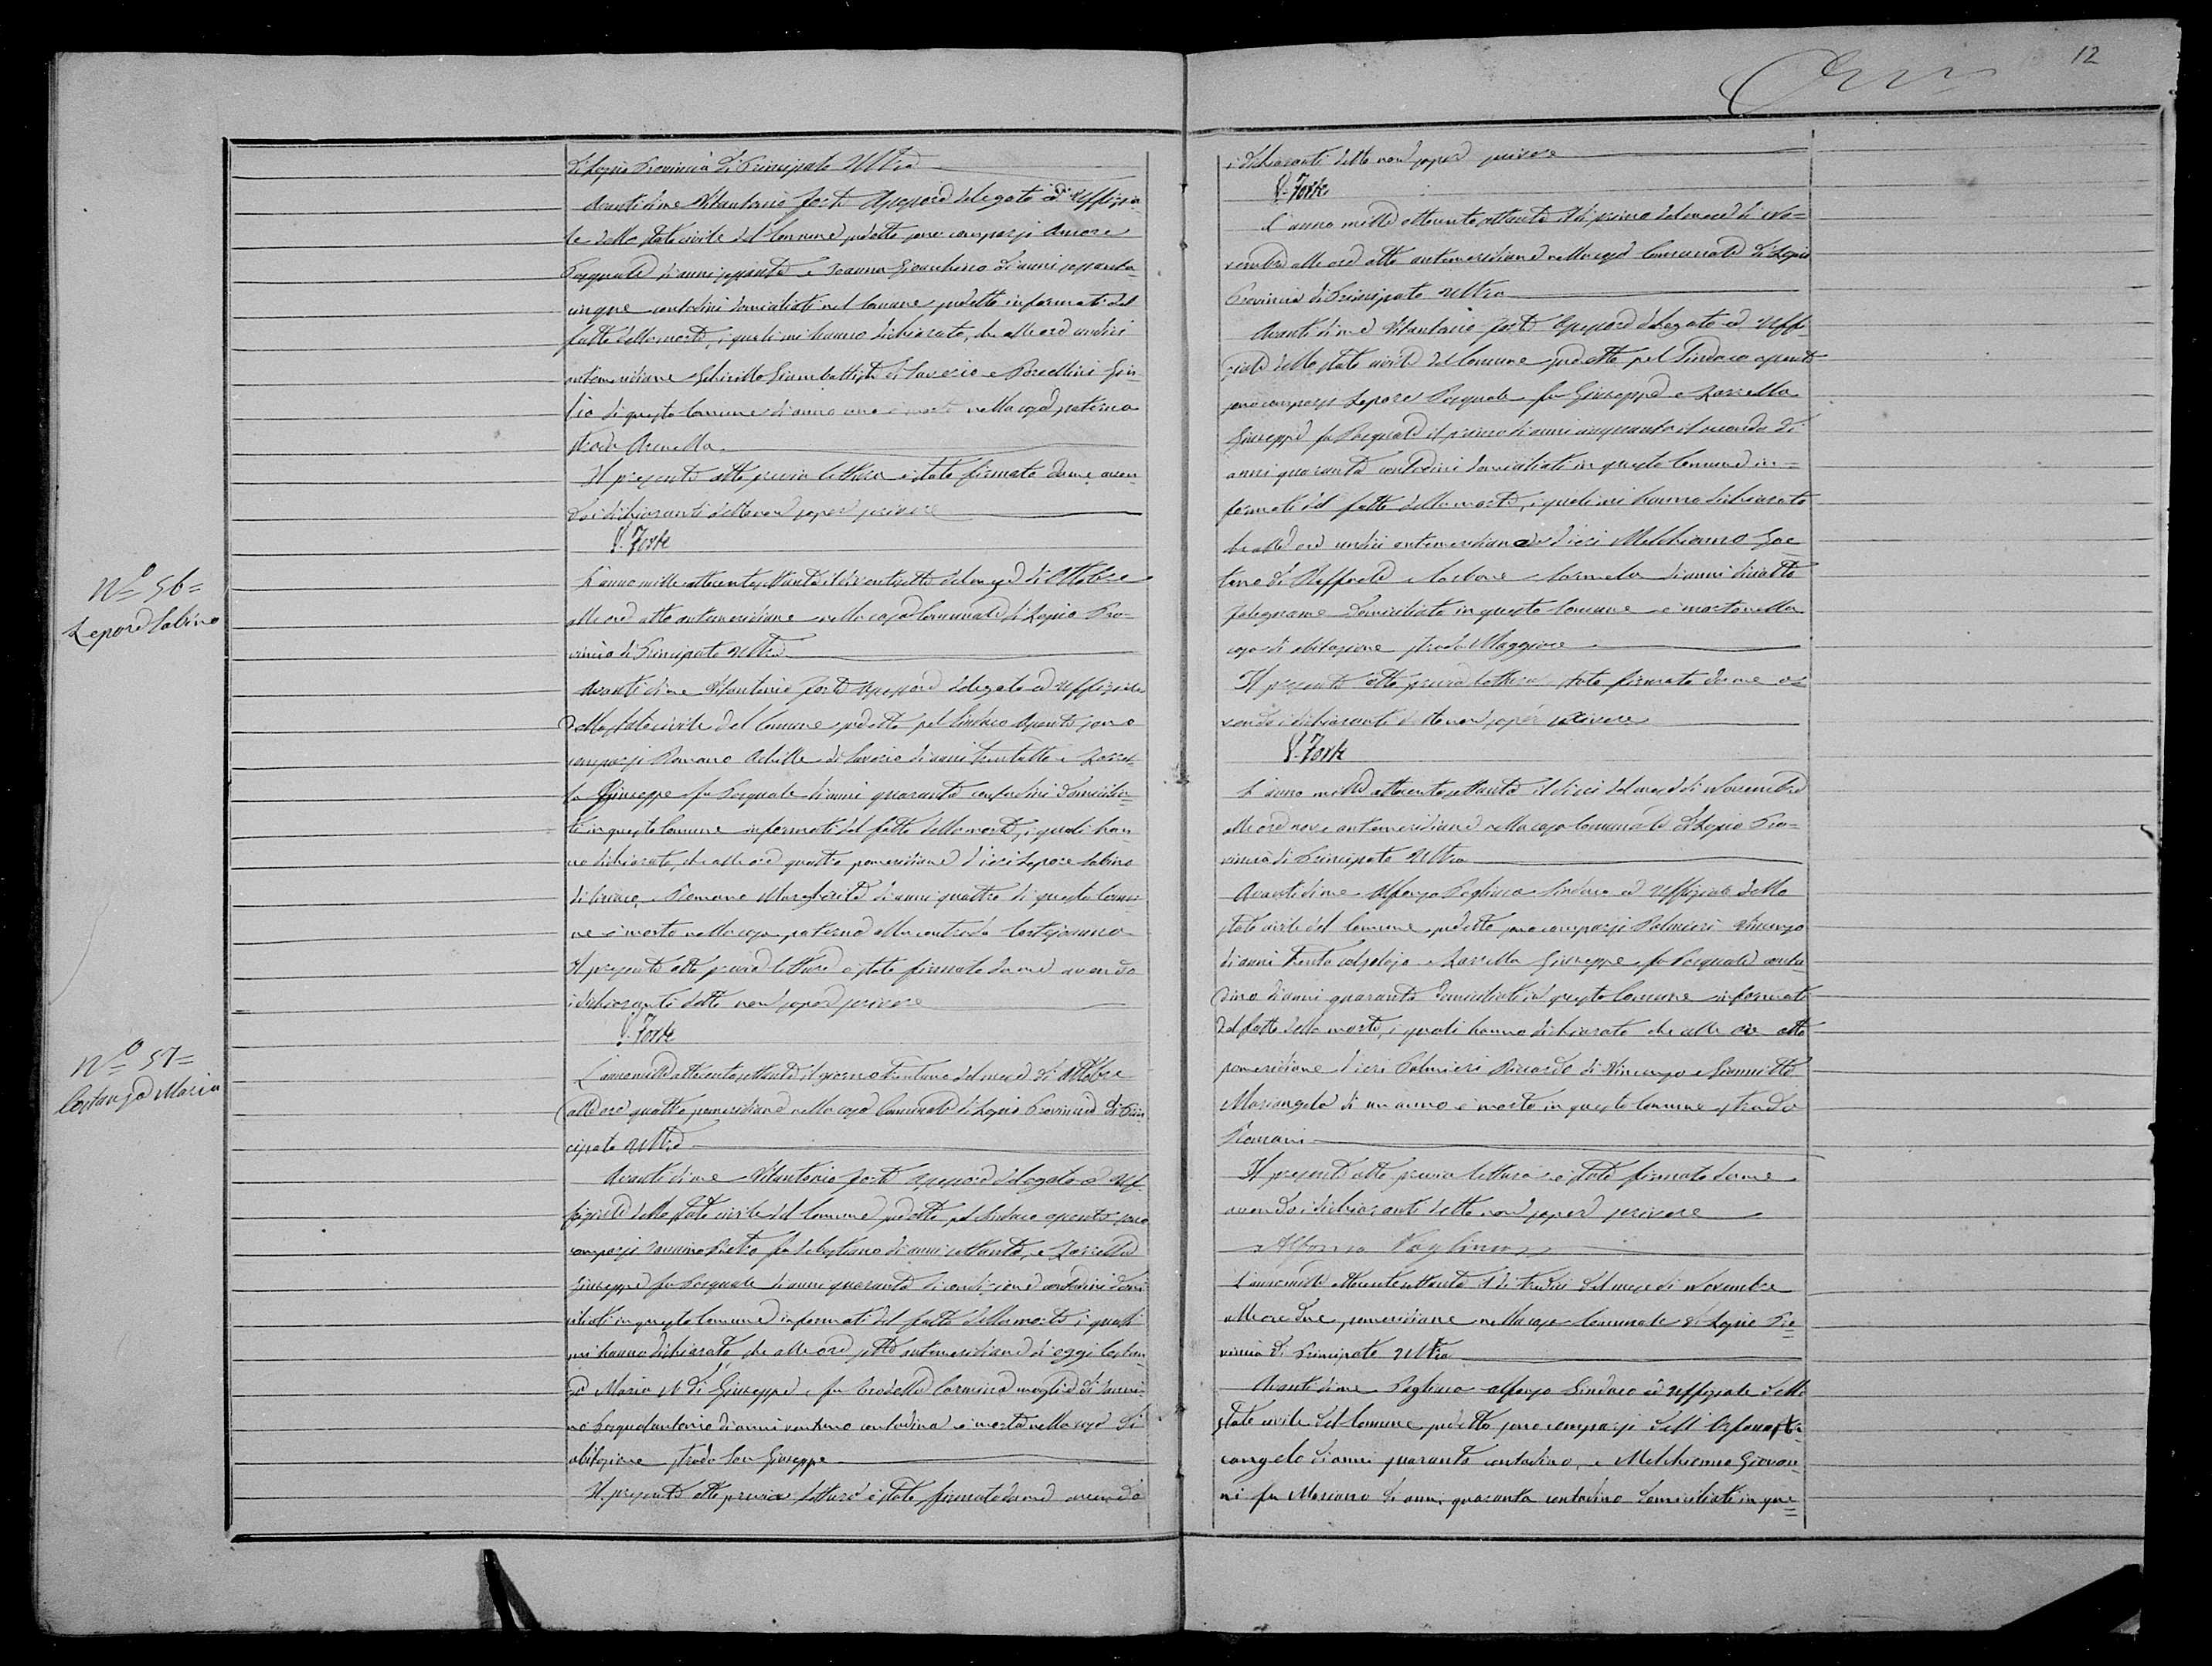 12
di Lapio Provincia di Principato Ultra
Avanti di me Vitantonio Forte Assessore delegato ad Uffizia-
le dello stato civile del Comune sudetto sono comparsi
Pasquale di anni sessanta e Gioacchino di anni sessanta
cinque contadini domiciliati nel Comune sudetto informati del
fatto della morte, i quali mi hanno dichiarato, che alle ore undici
antimeridiane Giambattista di Saverio e
di questo Comune di anni uno è morto nella casa paterna
strada Arenella
Il presente atto previa lettura è stato firmato da me aven-
do i dichiaranti detto non saper scrivere
V. Forte
No 56=
Lepore Sabino
L'anno mille ottocento settanta il dì ventisette del mese di Ottobre
alle ore otto antimeridiane nella casa Comunale di Lapio Pro-
vincia di Principato Ultra
Avanti di me Vitantonio Forte Assessore delegato ad Uffiziale
dello stato civile del Comune sudetto pel Sindaco assente sono
comparsi Romano Achille di Saverio di anni trentotto e Zarrel-
la Giuseppe fu Pasquale di anni quaranta contadini domicilia-
ti in questo Comune informati del fatto della morte, i quali han-
no dichiarato, che alle ore quattro pomeridiane d'ieri Lepore Sabino
di e Romano Margherita di anni quattro di questo Comu-
ne è morto nella casa paterna alla contrada
Il presente atto previa lettura è stato firmato da me avendo
i dichiaranti detto non saper scrivere
V. Forte
No 57=
Costanza Maria
L'anno mille ottocento settanta il giorno trentuno del mese di Ottobre
alle ore quattro pomeridiane nella casa Comunale di Lapio Provincia di Prin
cipato Ultra
Avanti di me Vitantonio Forte Assessore delegato ad Uf-
fiziale dello stato civile del Comune sudetto pel Sindaco assente sono
comparsi Pietro fu Sebastiano di anni settanta, e Zarrella
Giuseppe fu Pasquale di anni quaranta di condizione contadini domi
ciliati in questo Comune informati del fatto della morte, i quali
mi hanno dichiarato che alle ore sette antimeridiane di oggi Costan
za Maria di Giuseppe e fu Carmina moglie di
Pasqualantonio di anni ventuno contadina è morta nella casa di
abitazione strada San Giuseppe
Il presente atto previa lettura è stato firmato da me avendo
i dichiaranti detto non saper scrivere
V. Forte
L'anno mille ottocento settanta il dì primo del mese di No-
vembre alle ore otto antimeridiane nella casa Comunale di Lapio
Provincia di Principato Ultra
Avanti di me Vitantonio Forte Assessore delegato ad Uffi
ziale dello stato civile del Comune sudetto pel Sindaco assente
sono comparsi Lepore Pasquale fu Giuseppe e Zarrella
Giuseppe fu Pasquale il primo di anni cinquanta il secondo di
anni quaranta contadini domiciliati in questo Comune in-
formati del fatto della morte, i quali mi hanno dichiarato
che alle ore undici antimeridiane d'ieri Melchionno Gae
tano di Raffaele e Carbone Carmela di anni diciotto
falegname domiciliato in questo Comune è morto nella
casa di abitazione strada Maggiore
Il presente atto previa lettura è stato firmato da me a-
vendo i dichiaranti detto non saper scrivere
V. Forte
L'anno mille ottocento settanta il dieci del mese di Novembre
alle ore nove antimeridiane nella casa Comunale di Lapio Pro-
vincia di Principato Ultra
Avanti di me Alfonso Pagliuca Sindaco ed Uffiziale dello
stato civile del Comune sudetto sono comparsi Palmieri Vincenzo
di anni trenta calzolajo e Zarrella Giuseppe fu Pasquale conta
dino di anni quaranta domiciliati in questo Comune informati
del fatto della morte, i quali hanno dichiarato che alle ore otto
pomeridiane d'ieri Palmieri Riccardo di Vincenzo e Giannitto
Mariangela di un anno è morto in questo Comune strada
Romani
Il presente atto previa lettura è stato firmato da me
avendo i dichiaranti detto non saper scrivere
Alfonso Pagliuca
L'anno mille ottocento settanta il dì tredici del mese di Novembre
alle ore due pomeridiane nella casa Comunale di Lapio Pro
vincia di Principato Ultra
Avanti di me Pagliuca Alfonso Sindaco ed Uffiziale dello
stato civile del Comune sudetto sono comparsi
cangelo di anni quaranta contadino, e Melchionno Giovan-
ni fu Mariano di anni quaranta contadino domiciliati in que